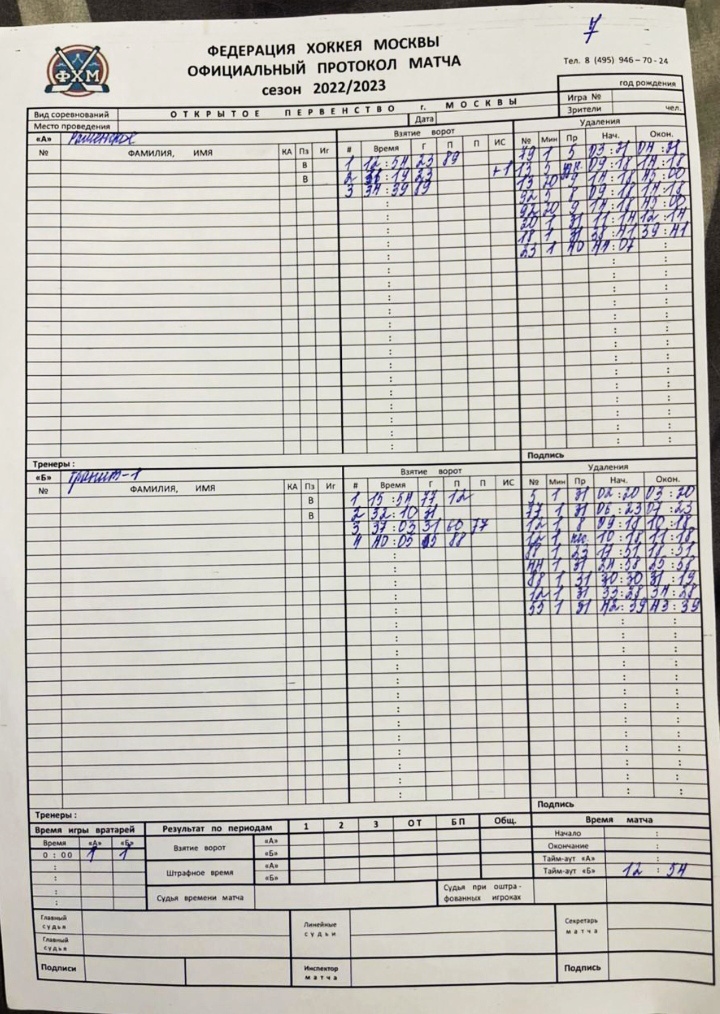 7
ФХМ
ФЕДЕРАЦИЯ ХОККЕЯ МОСКВЫ
ОФИЦИАЛЬНЫЙ ПРОТОКОЛ МАТЧА
сезон 2022/2023
Тел. 8 (495) 946–70-24
год рождения
Вид соревнований ОТКРЫТОЕ ПЕРВЕНСТВО г. МОСКВЫ Игра №
Место проведения Дата Зрители чел.
«А» Раменское Взятие ворот Удаления
№ ФАМИЛИЯ, ИМЯ КА Пз Иг # Время Г П П ИС № Мин Пр Нач. Окон.
В 1 12:54 23 89 79 1 5 03:31 04:31
В 2 19 23 +1 13 5 09:18 14:18
3 34:39 89 13 20 9 14:18 45:00
92 5 8 09:18 14:18
92 20 9 14:18 45:00
20 1 31 11:14 12:14
18 1 31 38:41 39:41
23 1 40 44:07
Тренеры: Подпись
«Б» Гранит-1 Взятие ворот Удаления
№ ФАМИЛИЯ, ИМЯ КА Пз Иг # Время Г П П ИС № Мин Пр Нач. Окон.
В 1 15:54 77 12 5 1 31 02:20 03:20
В 2 32:10 71 77 1 31 06:23 07:23
3 37:03 31 60 77 12 1 8 09:18 10:18
4 40:05 88 12 1 10:18 11:18
88 1 23 17:51 18:51
44 1 31 24:58 25:58
88 1 31 30:30 31:19
12 1 31 33:28 34:28
55 1 31 42:39 43:39
Тренеры: Подпись
Время игры вратарей Результат по периодам 1 2 3 ОТ БП Общ. Время матча
Время «А» «Б» Взятие ворот «А» Начало :
0:00 1 1 «Б» Окончание :
: Штрафное время «А» Тайм-аут «А» :
: «Б» Тайм-аут «Б» 12:54
: Судья времени матча Судья при оштра-
: фованных игроках
Главный судья Линейные судьи Секретарь матча
Главный судья
Подписи Инспектор матча Подпись